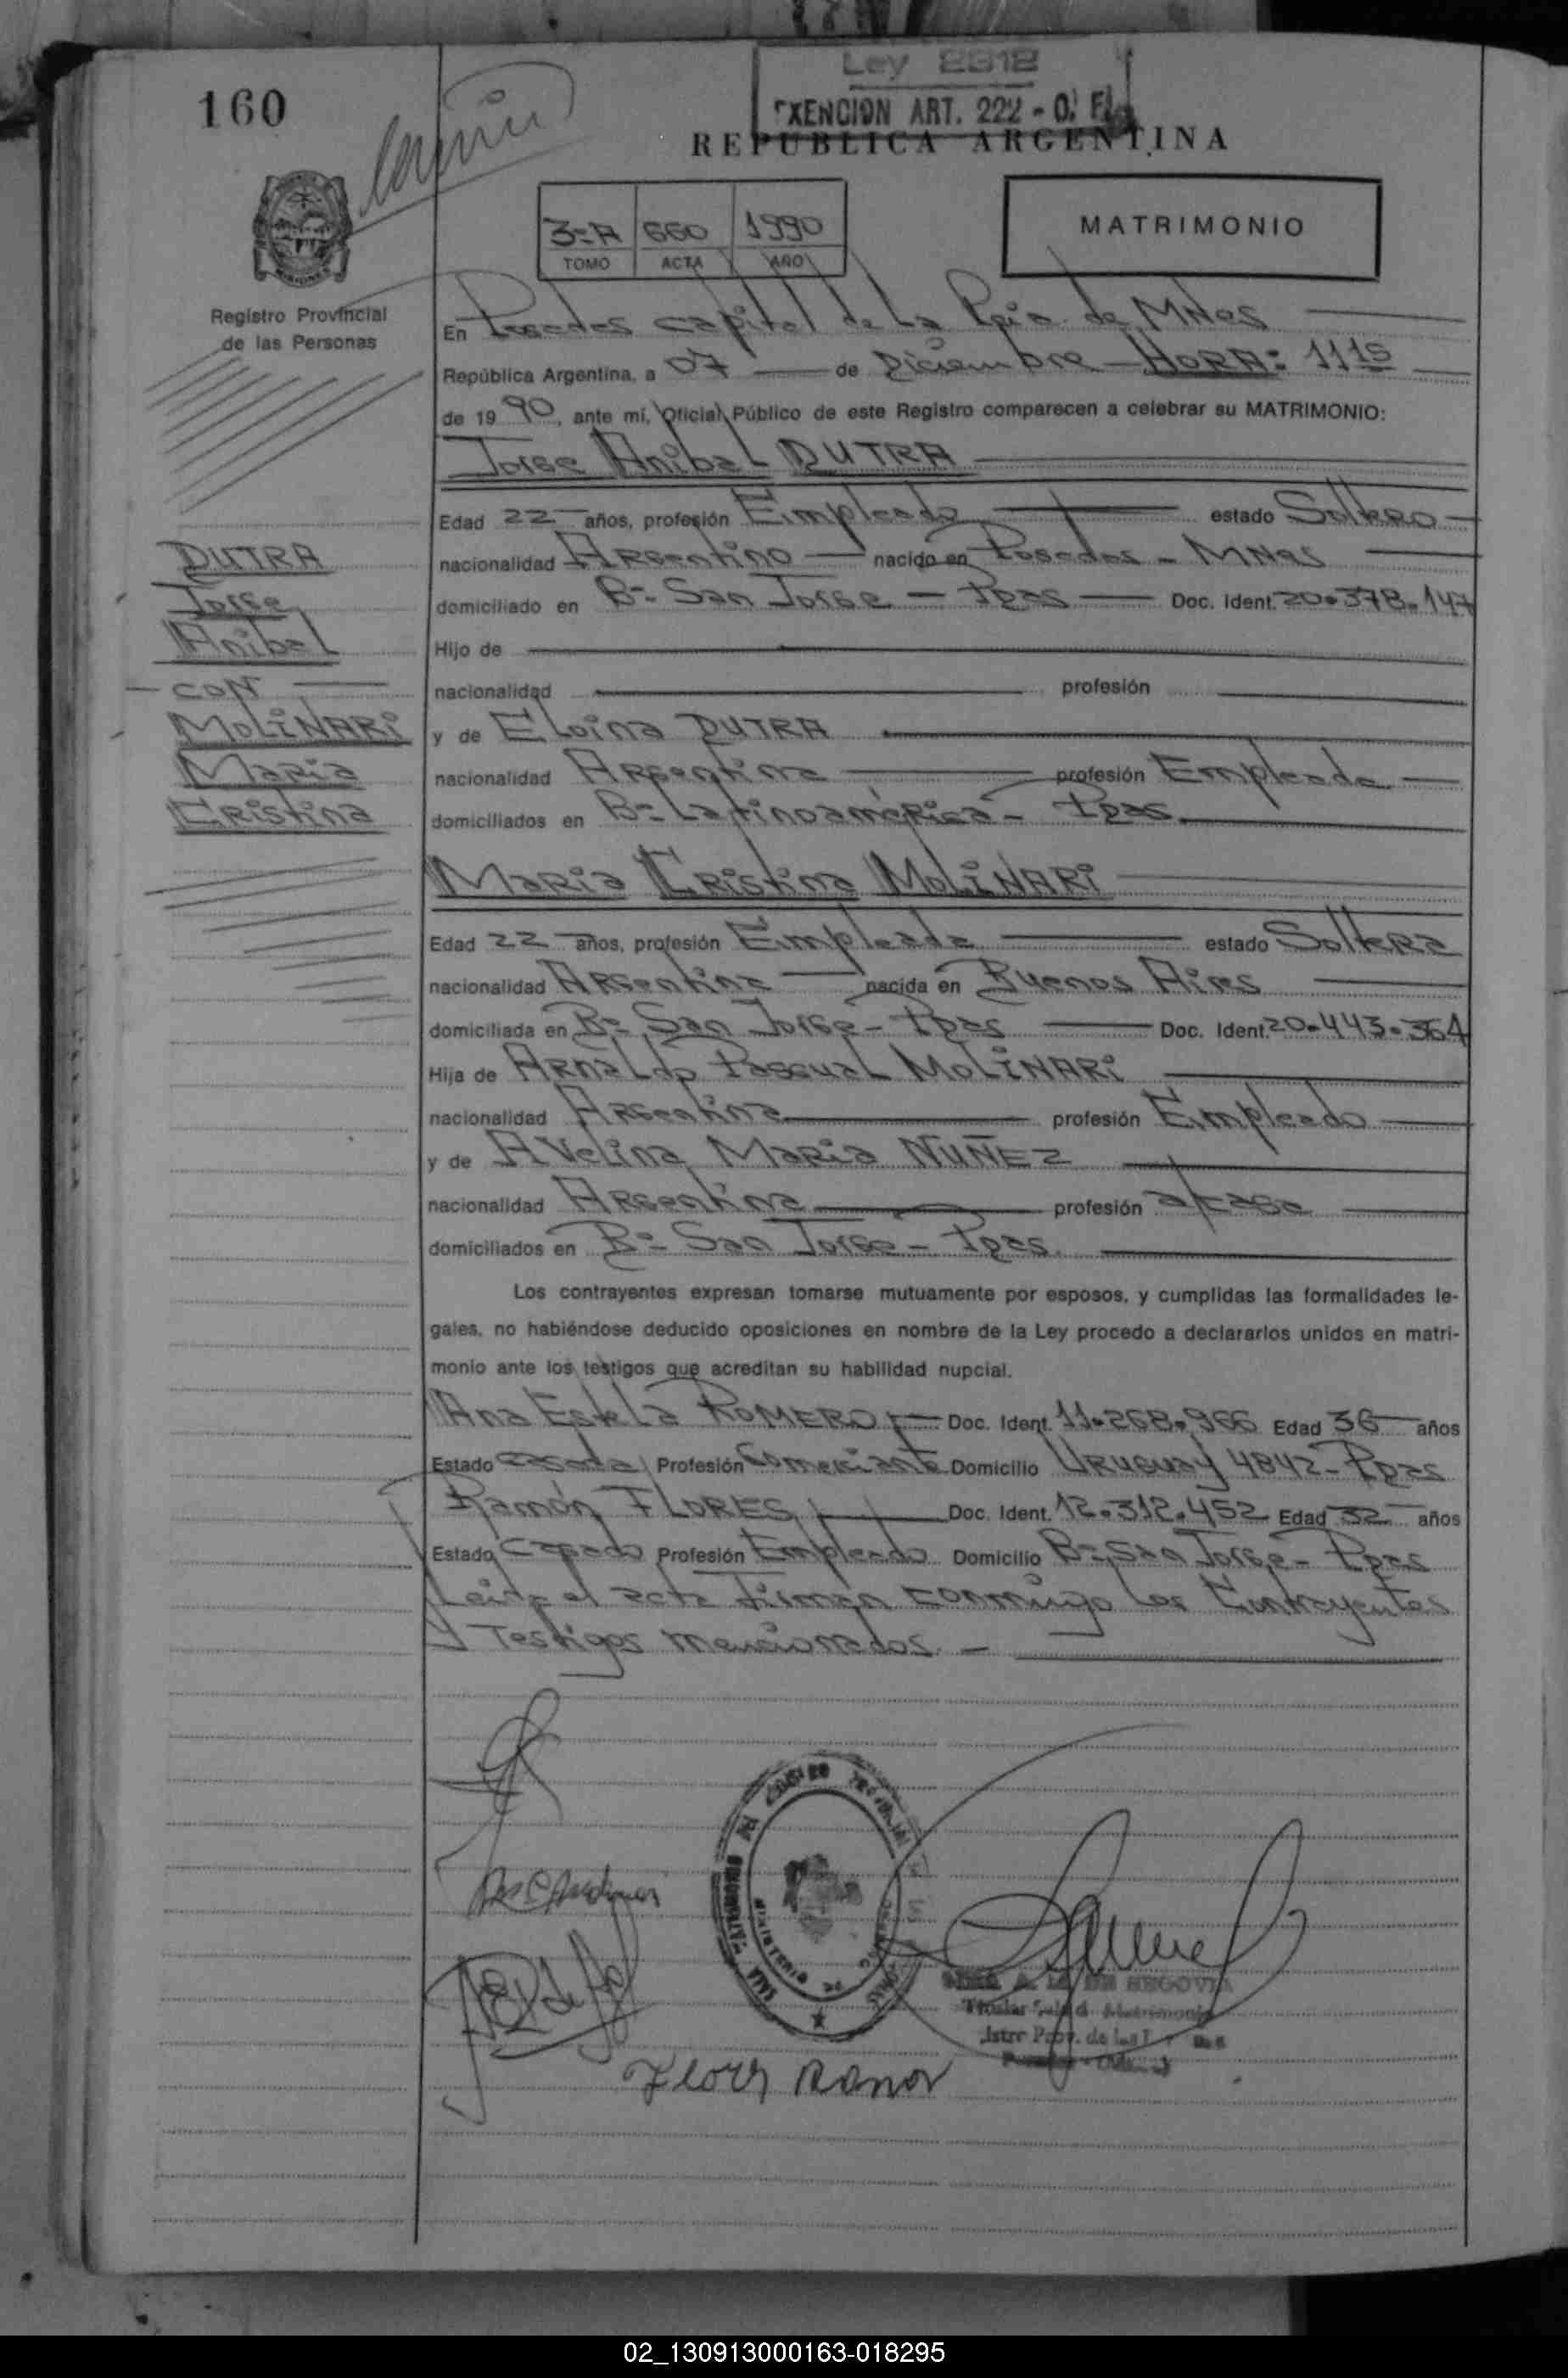 160
Ley 2312
EXENCION ART. 222 - O. F.
REPUBLICA ARGENTINA
3=A 660 1990
TOMO ACTA AÑO
MATRIMONIO
Registro Provincial
de las Personas
En Posadas capital de La Pcia. de MNes
República Argentina, a 07 de Diciembre - HORA: 11 15
de 1990, ante mí, Oficial Público de este Registro comparecen a celebrar su MATRIMONIO:
Jorge Anibal DUTRA
Edad 22 años, profesión Empleado estado Soltero
nacionalidad Argentino nacido en Posadas - MNes
domiciliado en B= San Jorge - Pdas Doc. Ident. 20.378.147
Hijo de
nacionalidad profesión
y de Eloina DUTRA
nacionalidad Argentina profesión Empleada
domiciliados en B= Latinoamérica - Pdas
DUTRA
Jorge
Anibal
- CON
MOLINARI
Maria
Cristina
Maria Cristina MOLINARI
Edad 22 años, profesión Empleada estado Soltera
nacionalidad Argentina nacida en Buenos Aires
domiciliada en B= San Jorge - Pdas Doc. Ident. 20.443.364
Hija de Arnaldo Pascual MOLINARI
nacionalidad Argentina profesión Empleado
y de Avelina Maria NUÑEZ
nacionalidad Argentina profesión
domiciliados en B= San Jorge - Pdas
Los contrayentes expresan tomarse mutuamente por esposos, y cumplidas las formalidades le-
gales, no habiéndose deducido oposiciones en nombre de la Ley procedo a declararlos unidos en matri-
monio ante los testigos que acreditan su habilidad nupcial.
Ana Estela ROMERO Doc. Ident. 11.268.966 Edad 36 años
Estado casada Profesión Comerciante Domicilio Uruguay 4842 - Pdas
Ramón FLORES Doc. Ident. 12.312.452 Edad 32 años
Estado Casado Profesión Empleado Domicilio B= San Jorge - Pdas
Leida el acta firman conmigo los Contrayentes
y Testigos mencionados. -
DE SEGOVIA
Titular Matrimonio
Flores Ramon
02_130913000163-018295